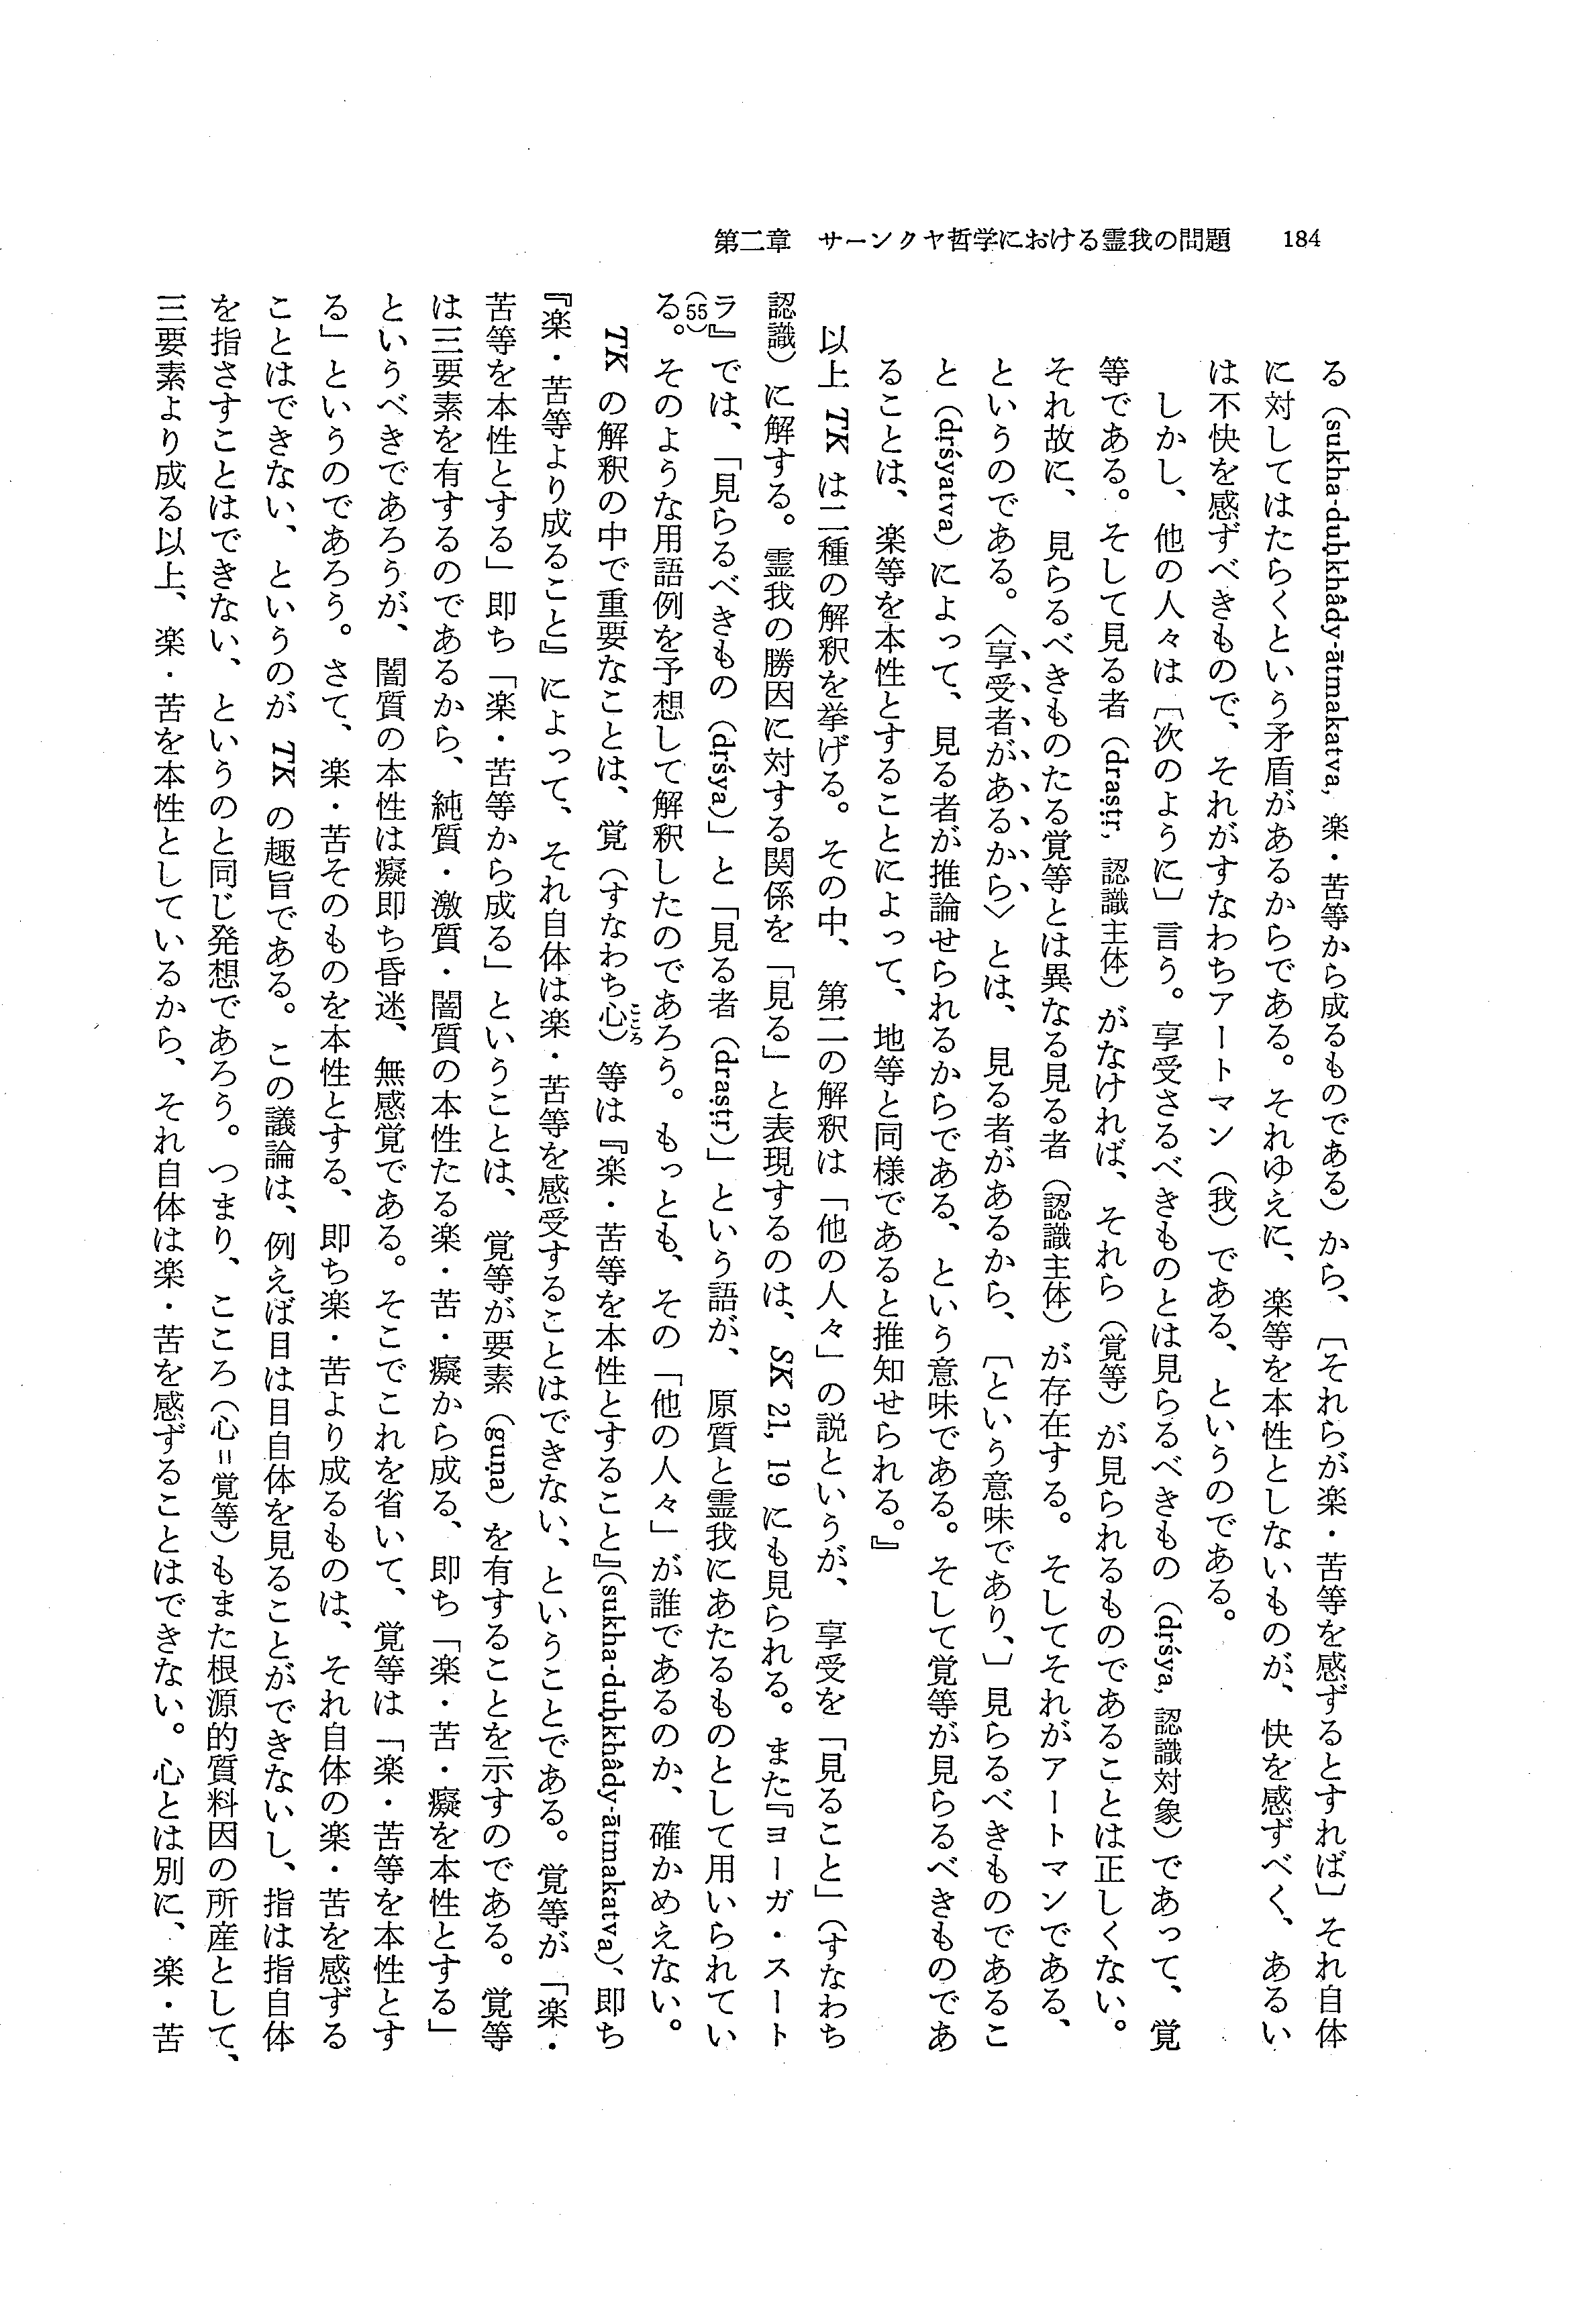 第二章 サーンクヤ哲学における霊我の問題 184
る（sukha-duḥkhâdy-ātmakatva, 楽・苦等から成るものである）から、〔それらが楽・苦等を感ずるとすれば〕それ自体
に対してはたらくという矛盾があるからである。それゆえに、楽等を本性としないものが、快を感ずべく、あるい
は不快を感ずべきもので、それがすなわちアートマン（我）である、というのである。
しかし、他の人々は〔次のように〕言う。享受さるべきものとは見らるべきもの（dṛśya, 認識対象）であって、覚
等である。そして見る者（draṣṭṛ, 認識主体）がなければ、それら（覚等）が見られるものであることは正しくない。
それ故に、見らるべきものたる覚等とは異なる見る者（認識主体）が存在する。そしてそれがアートマンである、
というのである。〈享受者があるから〉とは、見る者があるから、〔という意味であり、〕見らるべきものであるこ
と（dṛśyatva）によって、見る者が推論せられるからである、という意味である。そして覚等が見らるべきものであ
ることは、楽等を本性とすることによって、地等と同様であると推知せられる。』
以上 TK は二種の解釈を挙げる。その中、第二の解釈は「他の人々」の説というが、享受を「見ること」（すなわち
認識）に解する。霊我の勝因に対する関係を「見る」と表現するのは、SK 21, 19 にも見られる。また『ヨーガ・スート
ラ』では、「見らるべきもの（dṛśya）」と「見る者（draṣṭṛ）」という語が、原質と霊我にあたるものとして用いられてい
る。(55)そのような用語例を予想して解釈したのであろう。もっとも、その「他の人々」が誰であるのか、確かめえない。
TK の解釈の中で重要なことは、覚（すなわち心こころ）等は『楽・苦等を本性とすること』(sukha-duḥkhâdy-ātmakatva)、即ち
『楽・苦等より成ること』によって、それ自体は楽・苦等を感受することはできない、ということである。覚等が「楽・
苦等を本性とする」即ち「楽・苦等から成る」ということは、覚等が要素（guṇa）を有することを示すのである。覚等
は三要素を有するのであるから、純質・激質・闇質の本性たる楽・苦・癡から成る、即ち「楽・苦・癡を本性とする」
というべきであろうが、闇質の本性は癡即ち昏迷、無感覚である。そこでこれを省いて、覚等は「楽・苦等を本性とす
る」というのであろう。さて、楽・苦そのものを本性とする、即ち楽・苦より成るものは、それ自体の楽・苦を感ずる
ことはできない、というのが TK の趣旨である。この議論は、例えば目は目自体を見ることができないし、指は指自体
を指さすことはできない、というのと同じ発想であろう。つまり、こころ（心＝覚等）もまた根源的質料因の所産として、
三要素より成る以上、楽・苦を本性としているから、それ自体は楽・苦を感ずることはできない。心とは別に、楽・苦